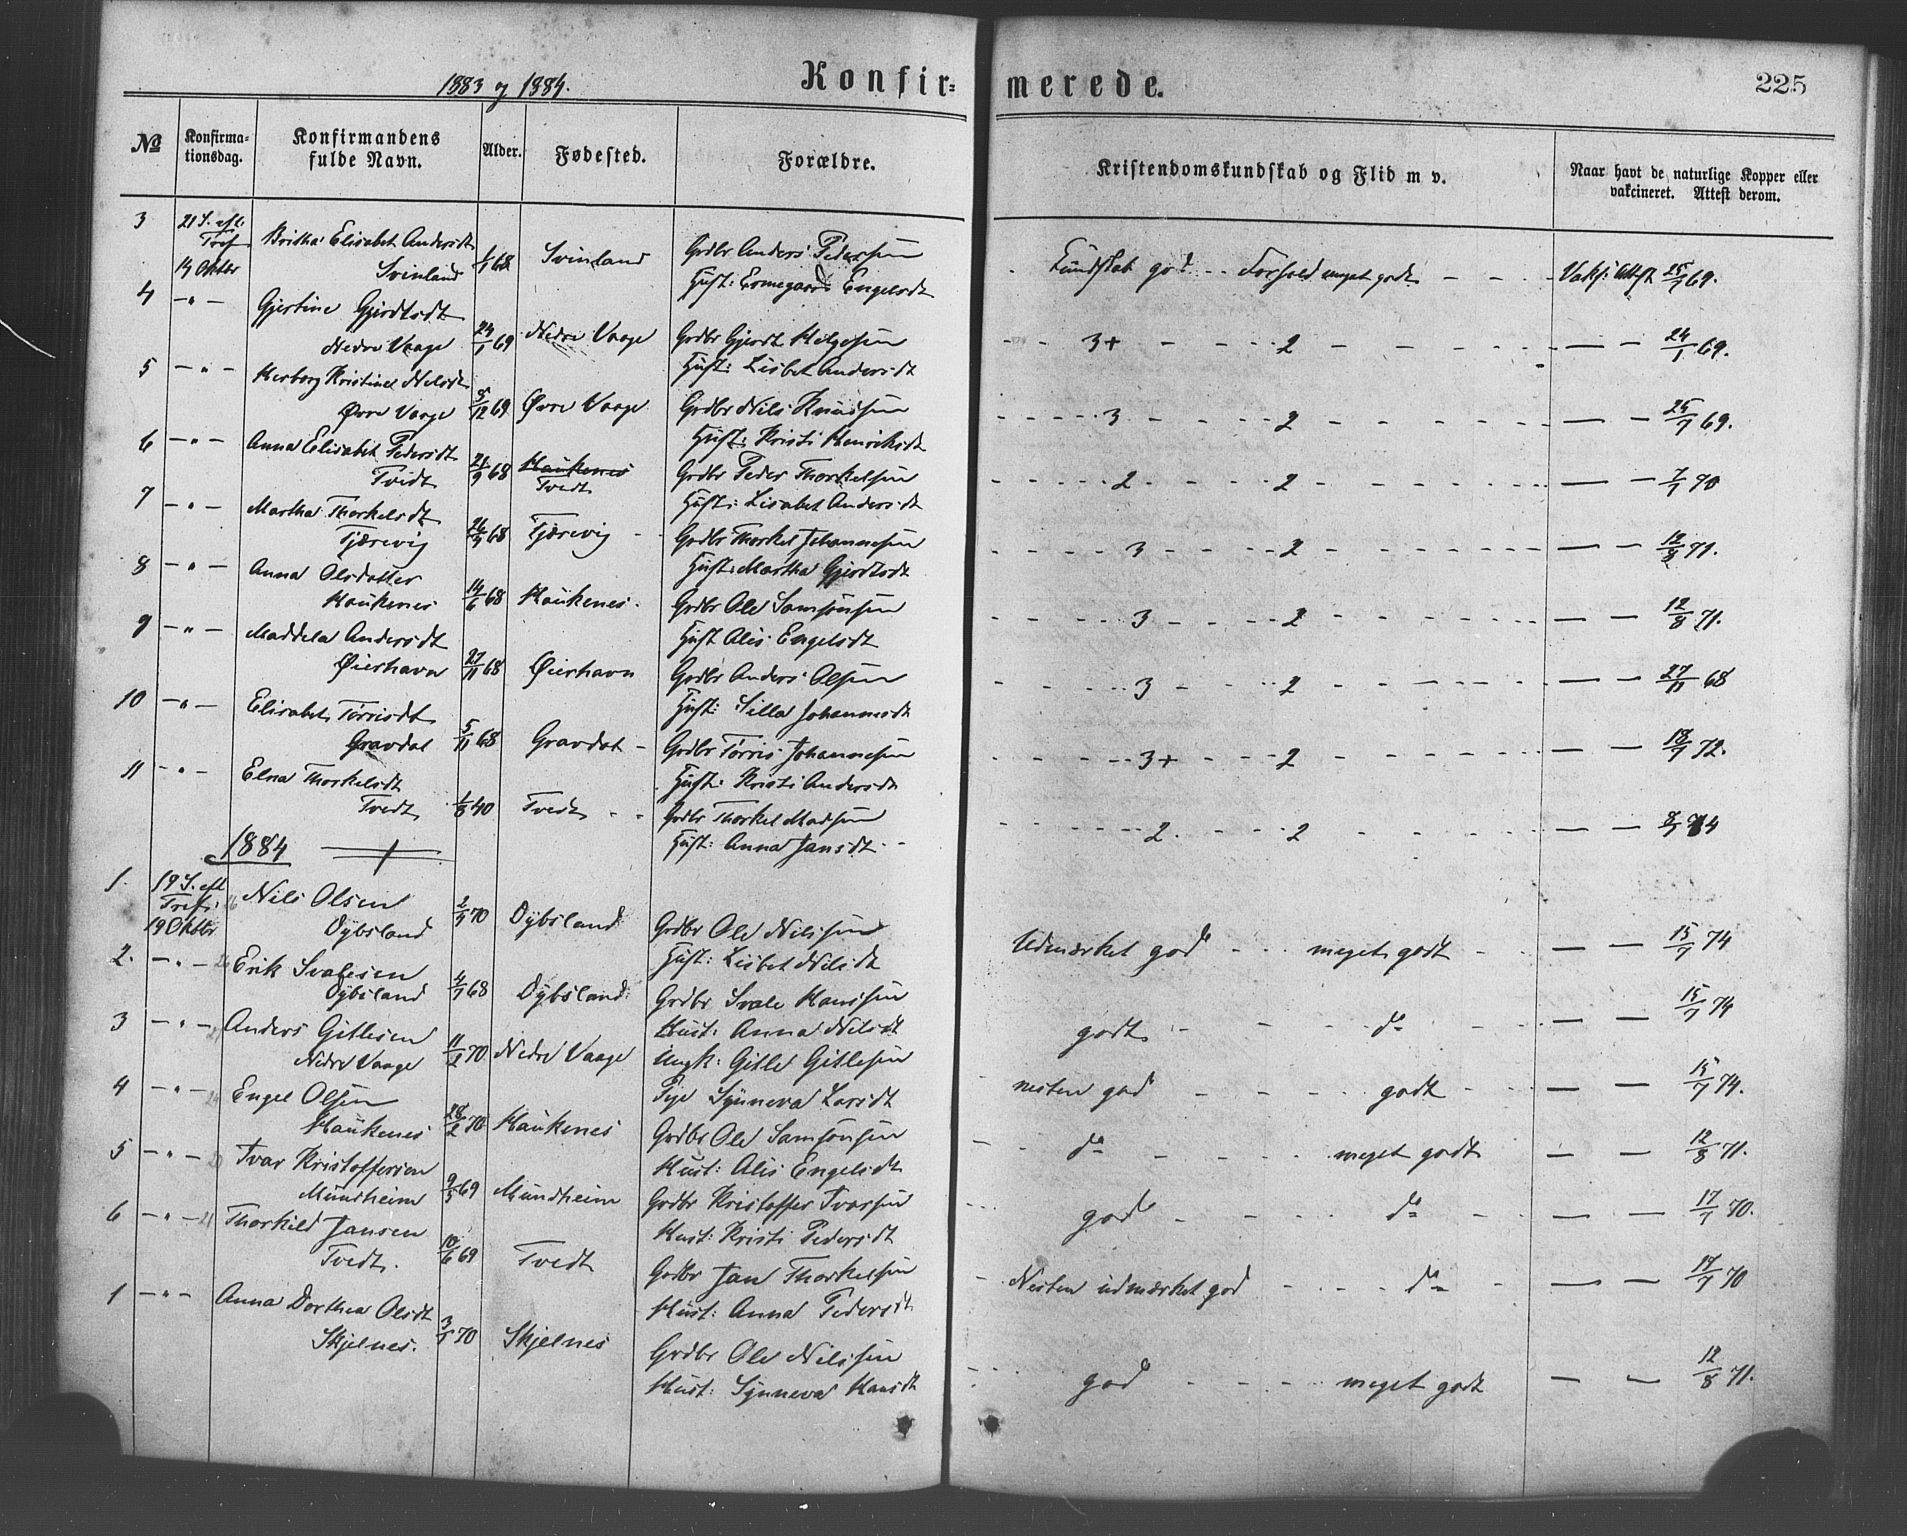 1883 og 1884.
Konfir=
merede.
225
No
Konfirma-
tionsdag.
Konfirmandens
fulde Navn.
Alder.
Fødested.
Forældre.
Kristendomskundskab og Flid m v.
Naar havt de naturlige Kopper eller
vakcineret. Attest derom.
3 21 S. eft. Britha Elisabet Andersdt
Tref
14 Oktbr Svinland 1/1 68 Svinland Grdbr Anders Pedersen
Hust: Ermegaard Engelsdt
Kundskab god - - Forhold meget godt - - - Vaks: Attst 25/7 69.
4 - " - Gjertine Gjerdtsdt
Nedre Vaage 24/1 69 Nedre Vaage Grdbr Gjerdt Helgesen
Hust: Lisbet Andersdt
3+ 2 24/1 69.
5 - " - Herborg Kristine Nelsdt
Øvre Vaage 5/12 69 Øvre Vaage Grdbr Nils Knudsen
Hust: Kristi Henriksdt
3 2 25/7 69.
6 - " - Anna Elisabet Pedersdt
Tvidt 21/9 68 Haukenes
Tvedt Grdbr Peder Thorkelsen
Hust: Lisabet Andersdt
2 2 7/7 70
7 - " - Martha Thorkelsdt
Tjærevig 26/9 68 Tjærevig Grdbr Thorkel Johannesen
Hust: Martha Gjerdtsdt
3 2 12/8 71.
8 - " - Anna Olsdatter
Haukenes 14/6 68 Haukenes. Grdbr Ole Samsonsen
Hust Alis Engelsdt
3 2 12/8 71.
9 - " - Maddela Andersdt
Øierhavn 27/11 68 Øierhavn Grdbr Anders Olsen
Hust: Silla Johannesdt
3 2 27/11 68
10 - " - Elisabet Tørrisdt
Gravdal 5/11 68 Gravdal Grdbr Tørris Johannesen
Hust: Kristi Andersdt
3+ 2 18/7 72.
11 - " - Elna Thorkelsdt
Tvedt 1/8 40 Tvedt Grdbr Thorkel Madsen
Hust: Anna Jansdt
2. 2 8/7 74
1884
1. 19 S. eft Nils Olsen
Tref:
19 Oktbr Dybsland 2/9 70 Dybsland Grdbr Ole Nilssen
Hust: Lisbet Nilsdt
Udmærket god - - meget godt - - 15/7 74
2. - " - Erik Svalesen
Dybsland 4/7 68 Dybsland Grdbr Svale Hanssen
Hust: Anna Nilsdt
godt - - do 15/7 74
3 - " - Anders Gitlesen
Nedre Vaage 11/2 70 Nedre Vaage Ungk: Gitle Gitlesen
Pige Synneva Larsdt
nesten god godt 15/7 74.
4 - " - Engel Olsen
Haukenes 28/2 70 Haukenes Grdbr Ole Samsonsen
Hust: Alis Engelsdt
do meget godt 12/8 71.
5 - " - Ivar Kristoffersen
Mundheim 9/5 69 Mundheim Grdbr Kristoffer Ivarsen
Hust: Kristi Pedersdt
god do 17/7 70.
6 - " - Thorkild Jansen
Tvedt. 10/6 69 Tvedt Grdbr Jan Thorkelsen
Hust: Anna Pedersdt
Nesten udmærket god do 17/7 70
1 - " - Anna Dorthea Olsdt
Skjelnes. 3/1 70 Skjelnes Grdbr Ole Nilssen
Hust: Synneva Hansdt
god meget godt 12/8 71.